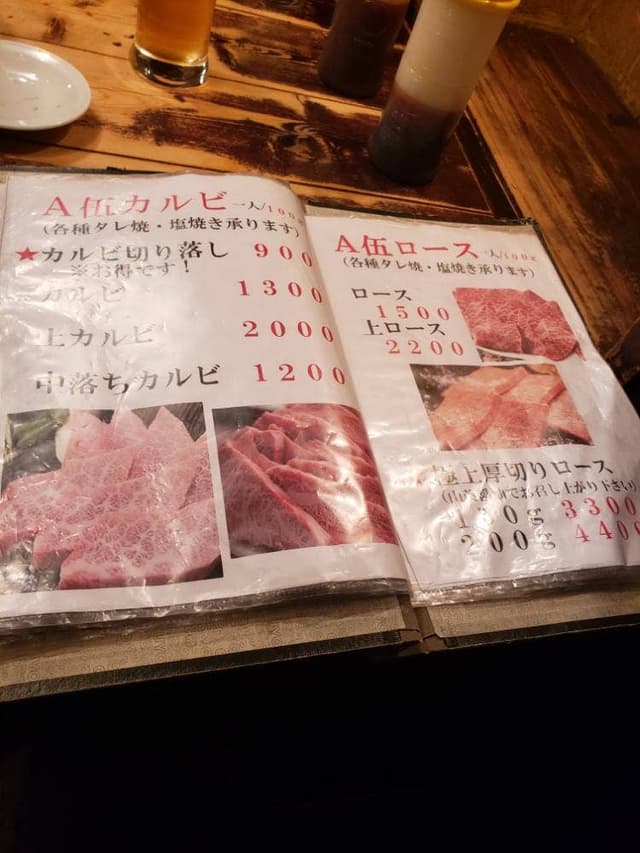 A伍カルビ 一人/100g
(各種タレ焼・塩焼き承ります)
★カルビ切り落し 900
※お得です!
カルビ 1300
上カルビ 2000
中落ちカルビ 1200
A伍ロース 一人/100g
(各種タレ焼・塩焼き承ります)
ロース
1500
上ロース
2200
極上厚切りロース
でお召し上がり下さい)
150g 3300
200g 4400